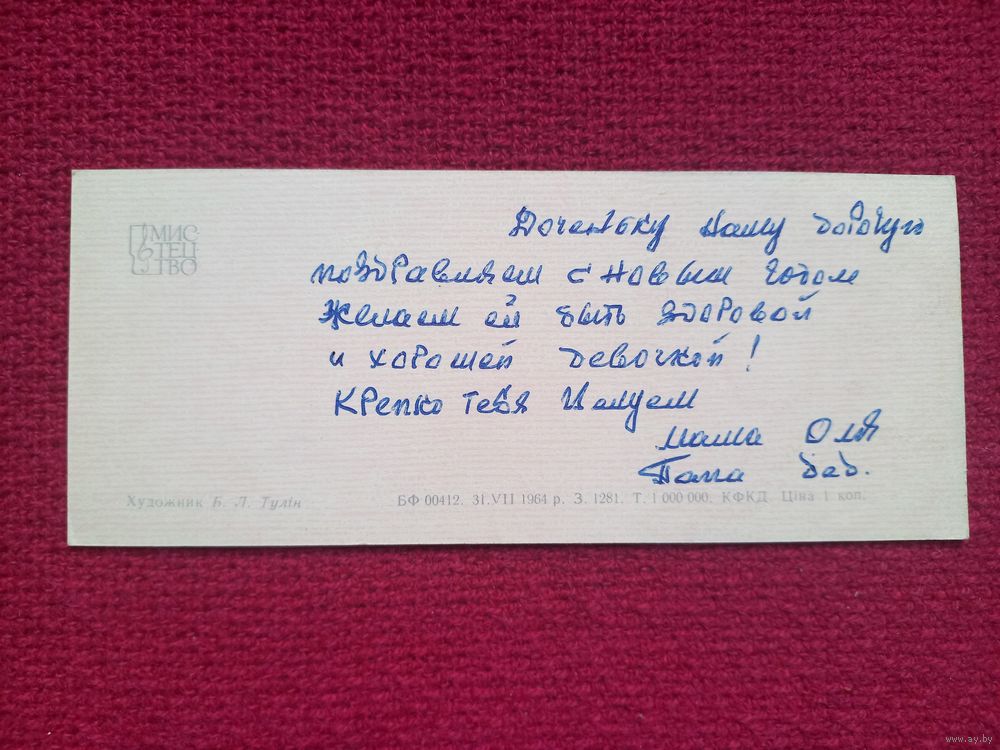 МИС
ТЕЦ
ТВО
Доченьку нашу дорогую
поздравляем с новым годом
желаем ей быть здоровой
и хорошей девочкой!
Крепко тебя целуем
мама Оля
Папа Деб.
Художник Б. Л. Тулін
БФ 00412. 31.VII 1964 р. З. 1281. Т. 1 000 000. КФКД. Ціна 1 коп.
www.ay.by